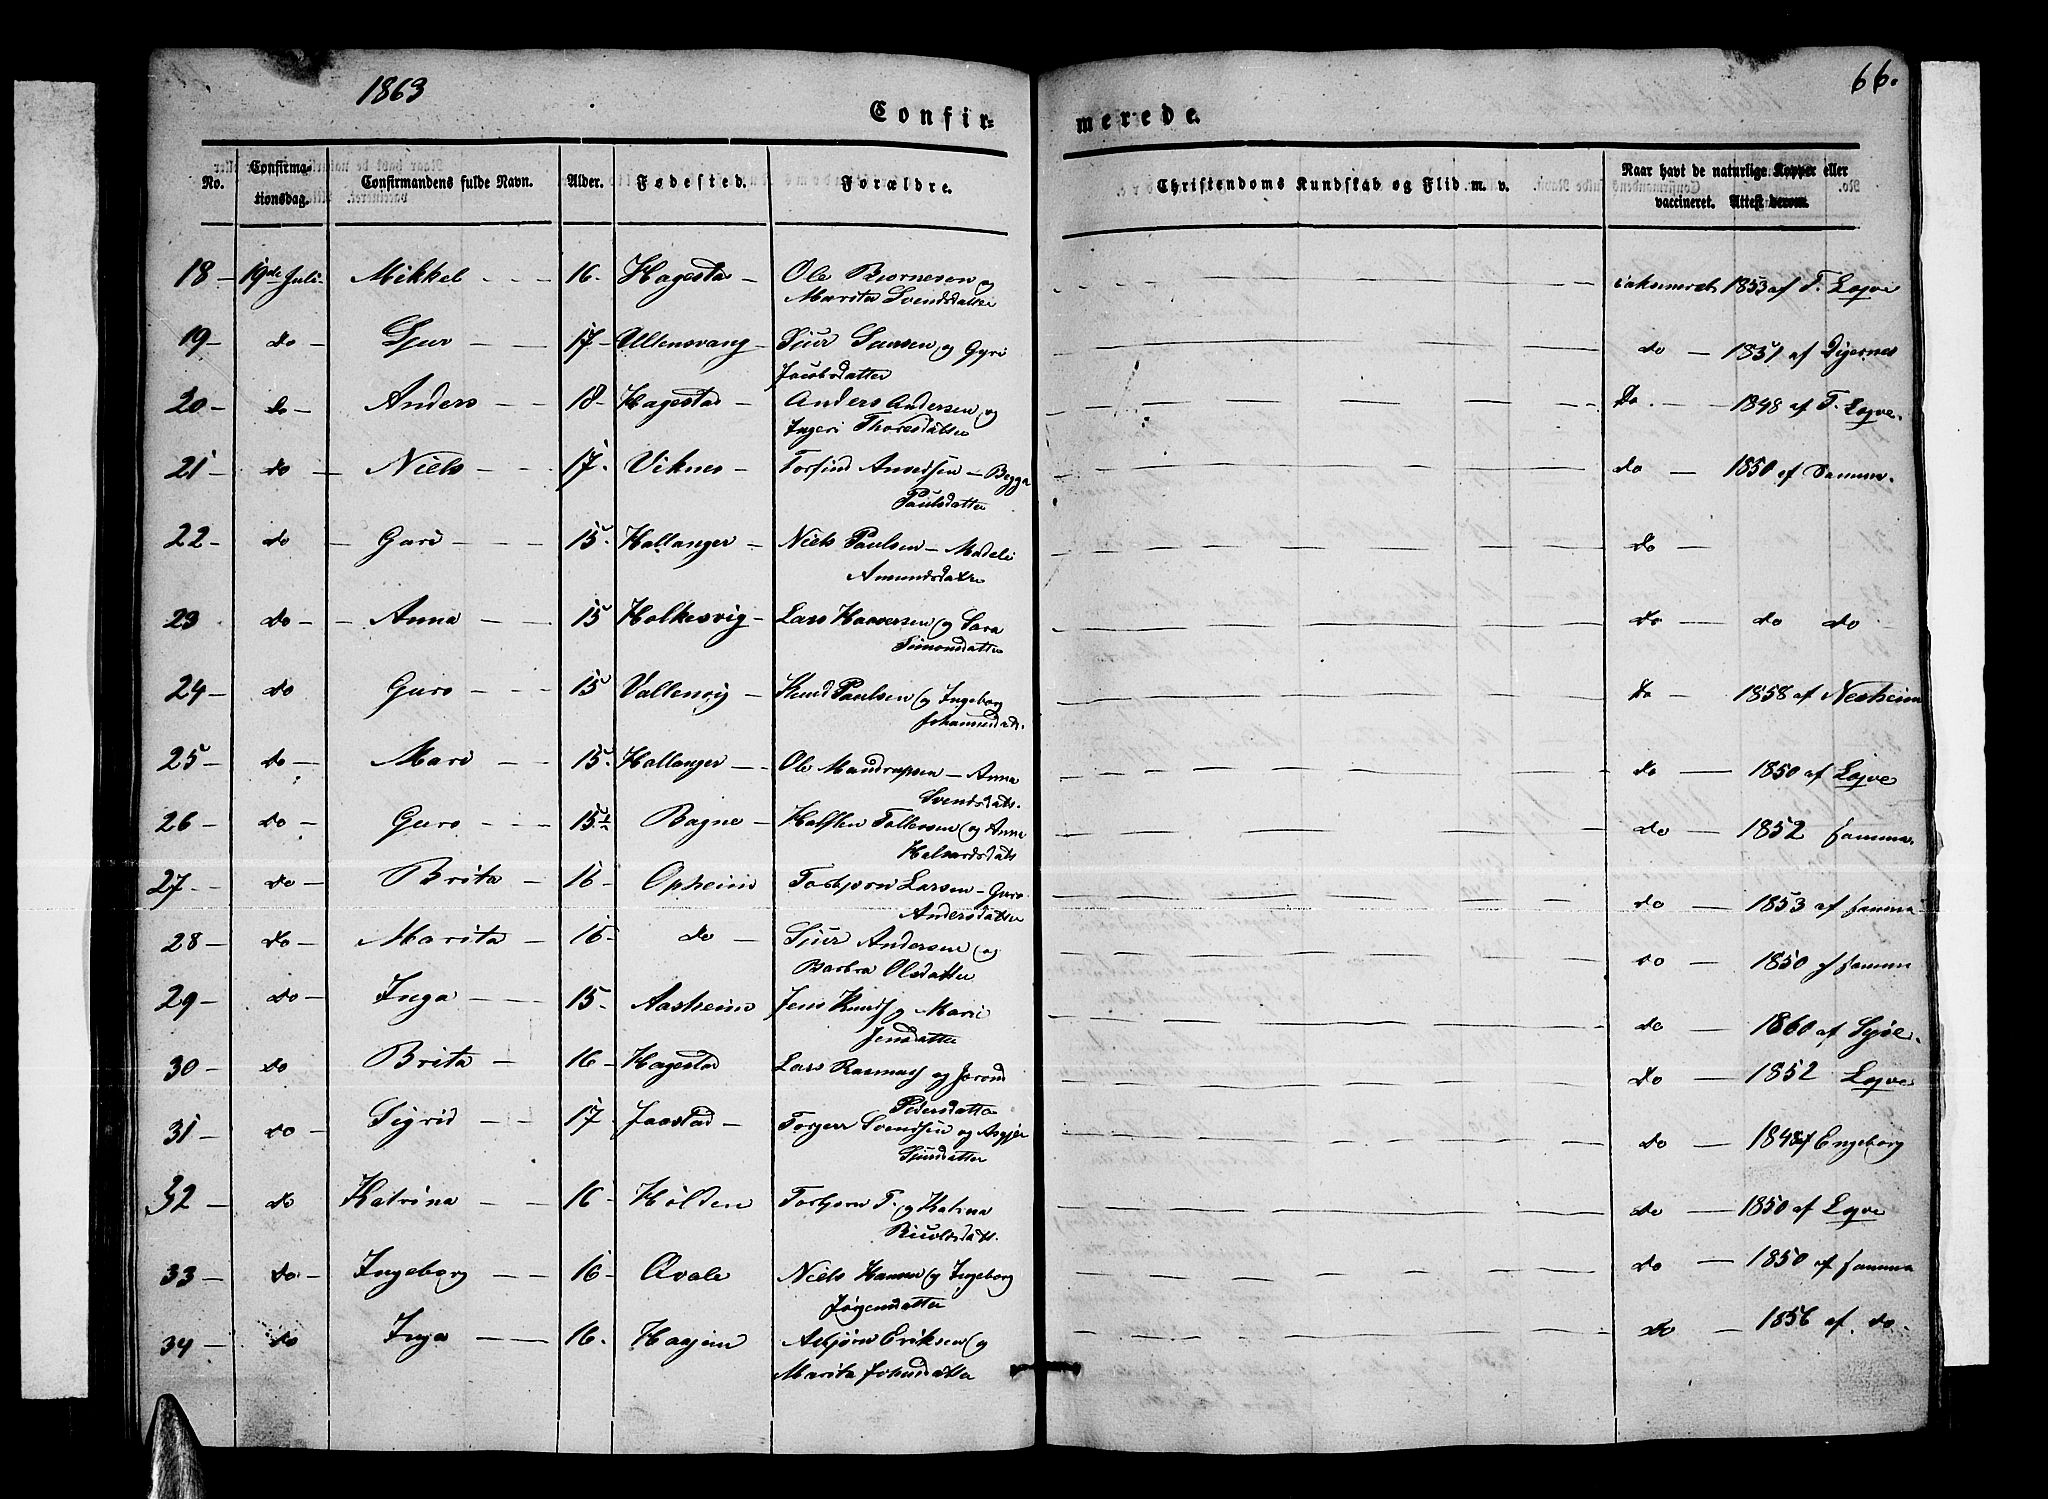 1863
66.
Confir=
merede.
No.
Confirma-
tionsdag.
Confirmandens fulde Navn.
Alder.
Fødested.
Forældre.
Christendoms Kundskab og Flid m. v.
Naar havt de naturlige Kopper eller
vaccineret. Attest derom.
18 - 19de Juli - Mikkel - - - 16 - Hagestad - Ole Bjørnesen og 1853 af T. Lojve
Marita Svendsdatter
19 - do - Sjur - - - 17 - Ullensvang - Sjur Larsen og Gyri do - 1851 af Digernes
Jacobsdatter
20 - do - Anders - - 18 - Hagestad - Anders Andersen og Do - - 1848 af T. Lojve.
Ingeri Thoresdatter
21 - do - Niels - - 17 - Viknes - Torfind - Begga do - 1850 af Samme.
Paulsdatter
22 - do - Guri - - - 15 - Hallanger - Niels Paulsen - do -
Amundsdatter
23 do - - Anna - - 15 Holkesvig - Lars Haaversen og Sara do - do do
Simonsdatter
24 - do Guro - - - 15 Vallenvig - Knud Paulsen og Ingeborg do - 1858 af Nesheim
25 - do - Mari - - 15 - Hallanger - Ole Mandrupsen - Anna do - 1850 af Lojve
Svendsdats.
26 - do - Guro - - - 15½ Bagne - Halsten og Anna do - 1852 samme.
Halvardsdats
27 - do - Brita - 16 - Opheim Torbjørn Larsen - Guro do - 1853 af samme
Andersdatter
28 - do - Marita - 16 - do - Sjur Andersen og do - 1850 af samme
Barbra Olsdatter
29 - do - Inga - - - 15 - Aasheim Jens Knuds og Mari do - 1860 af
Jensdatter
30 - do Brita - 16 - Hagestad Lars Rasmus og do - 1852 Lojve
Pedersdatter
31 - do - Sigrid - - 17 Jaastad - Torger Svendsen og do - 1848 af Engeborg
Sjursdatter
32 - do Katrina - - 16 - Hølden Torbjørn T. og Katrina do - 1850 af Lojve
33 - do - Ingeborg - - 16 - Qvale Niels Hansen og Ingeborg do - 1850 af samme
Jørgensdatter
34 - do Inga - - 16 - Asbjørn Eriksen og do - 1856 af do.
Marita Johnsdatter